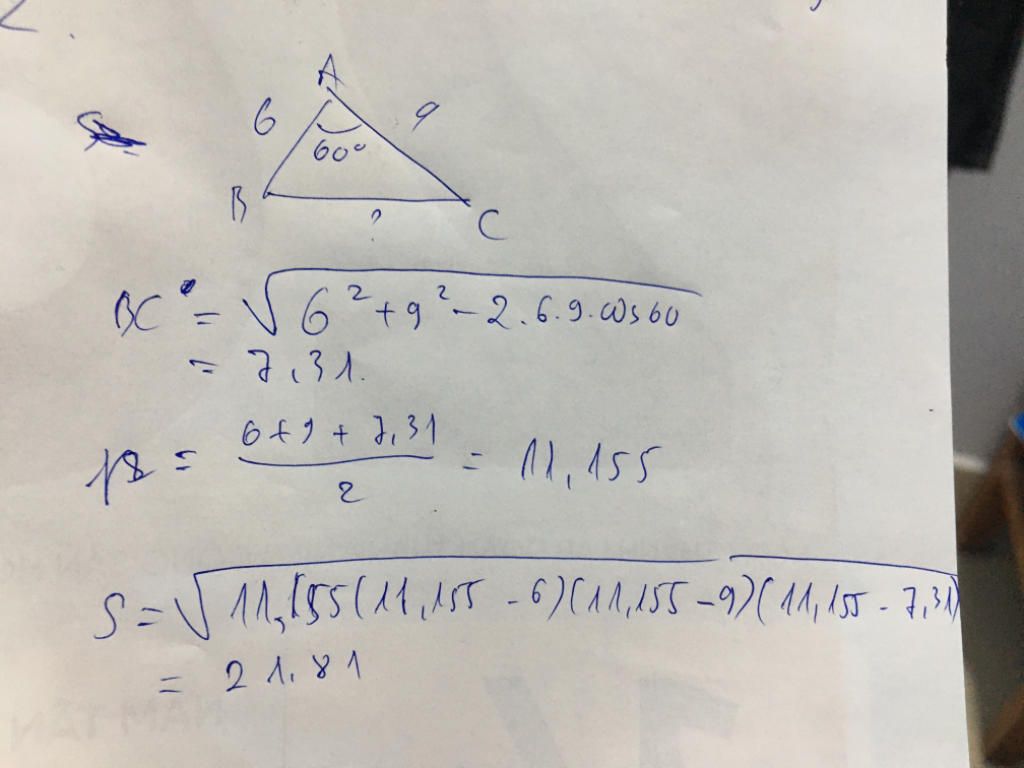 2.
A
6 9
60°
B ? C
BC = √6² + 9² - 2.6.9.cos60
= 7,31.
p = (6+9+7,31)/2 = 11,155
S = √11,155(11,155 - 6)(11,155 - 9)(11,155 - 7,31)
= 21.81
NAM TÂN